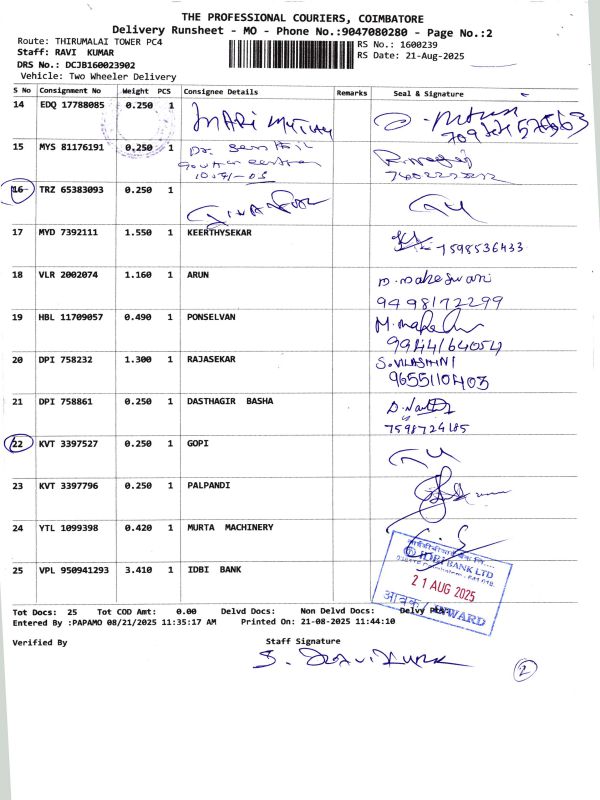 THE PROFESSIONAL COURIERS, COIMBATORE
Delivery Runsheet - MO - Phone No.:9047080280 - Page No.:2
Route: THIRUMALAI TOWER PC4
RS No.: 1600239
Staff: RAVI KUMAR
RS Date: 21-Aug-2025
DRS No.: DCJB160023902
Vehicle: Two Wheeler Delivery
S No Consignment No Weight PCS Consignee Details Remarks Seal & Signature
14 EDQ 17788085 0.250 1
15 MYS 81176191 0.250 1 Dr. Senthil
16 TRZ 65383093 0.250 1
17 MYD 7392111 1.550 1 KEERTHYSEKAR 7598536433
18 VLR 2002074 1.160 1 ARUN M. Maheswari
9498172299
19 HBL 11709057 0.490 1 PONSELVAN
9944164054
20 DPI 758232 1.300 1 RAJASEKAR S. VILASHINI
9655110403
21 DPI 758861 0.250 1 DASTHAGIR BASHA
7598724185
22 KVT 3397527 0.250 1 GOPI
23 KVT 3397796 0.250 1 PALPANDI
24 YTL 1099398 0.420 1 MURTA MACHINERY
25 VPL 950941293 3.410 1 IDBI BANK
IDBI BANK LTD
21 AUG 2025
आवक / INWARD
Tot Docs: 25 Tot COD Amt: 0.00 Delvd Docs: Non Delvd Docs: Delvy
Entered By :PAPAMO 08/21/2025 11:35:17 AM Printed On: 21-08-2025 11:44:10
Verified By Staff Signature
2